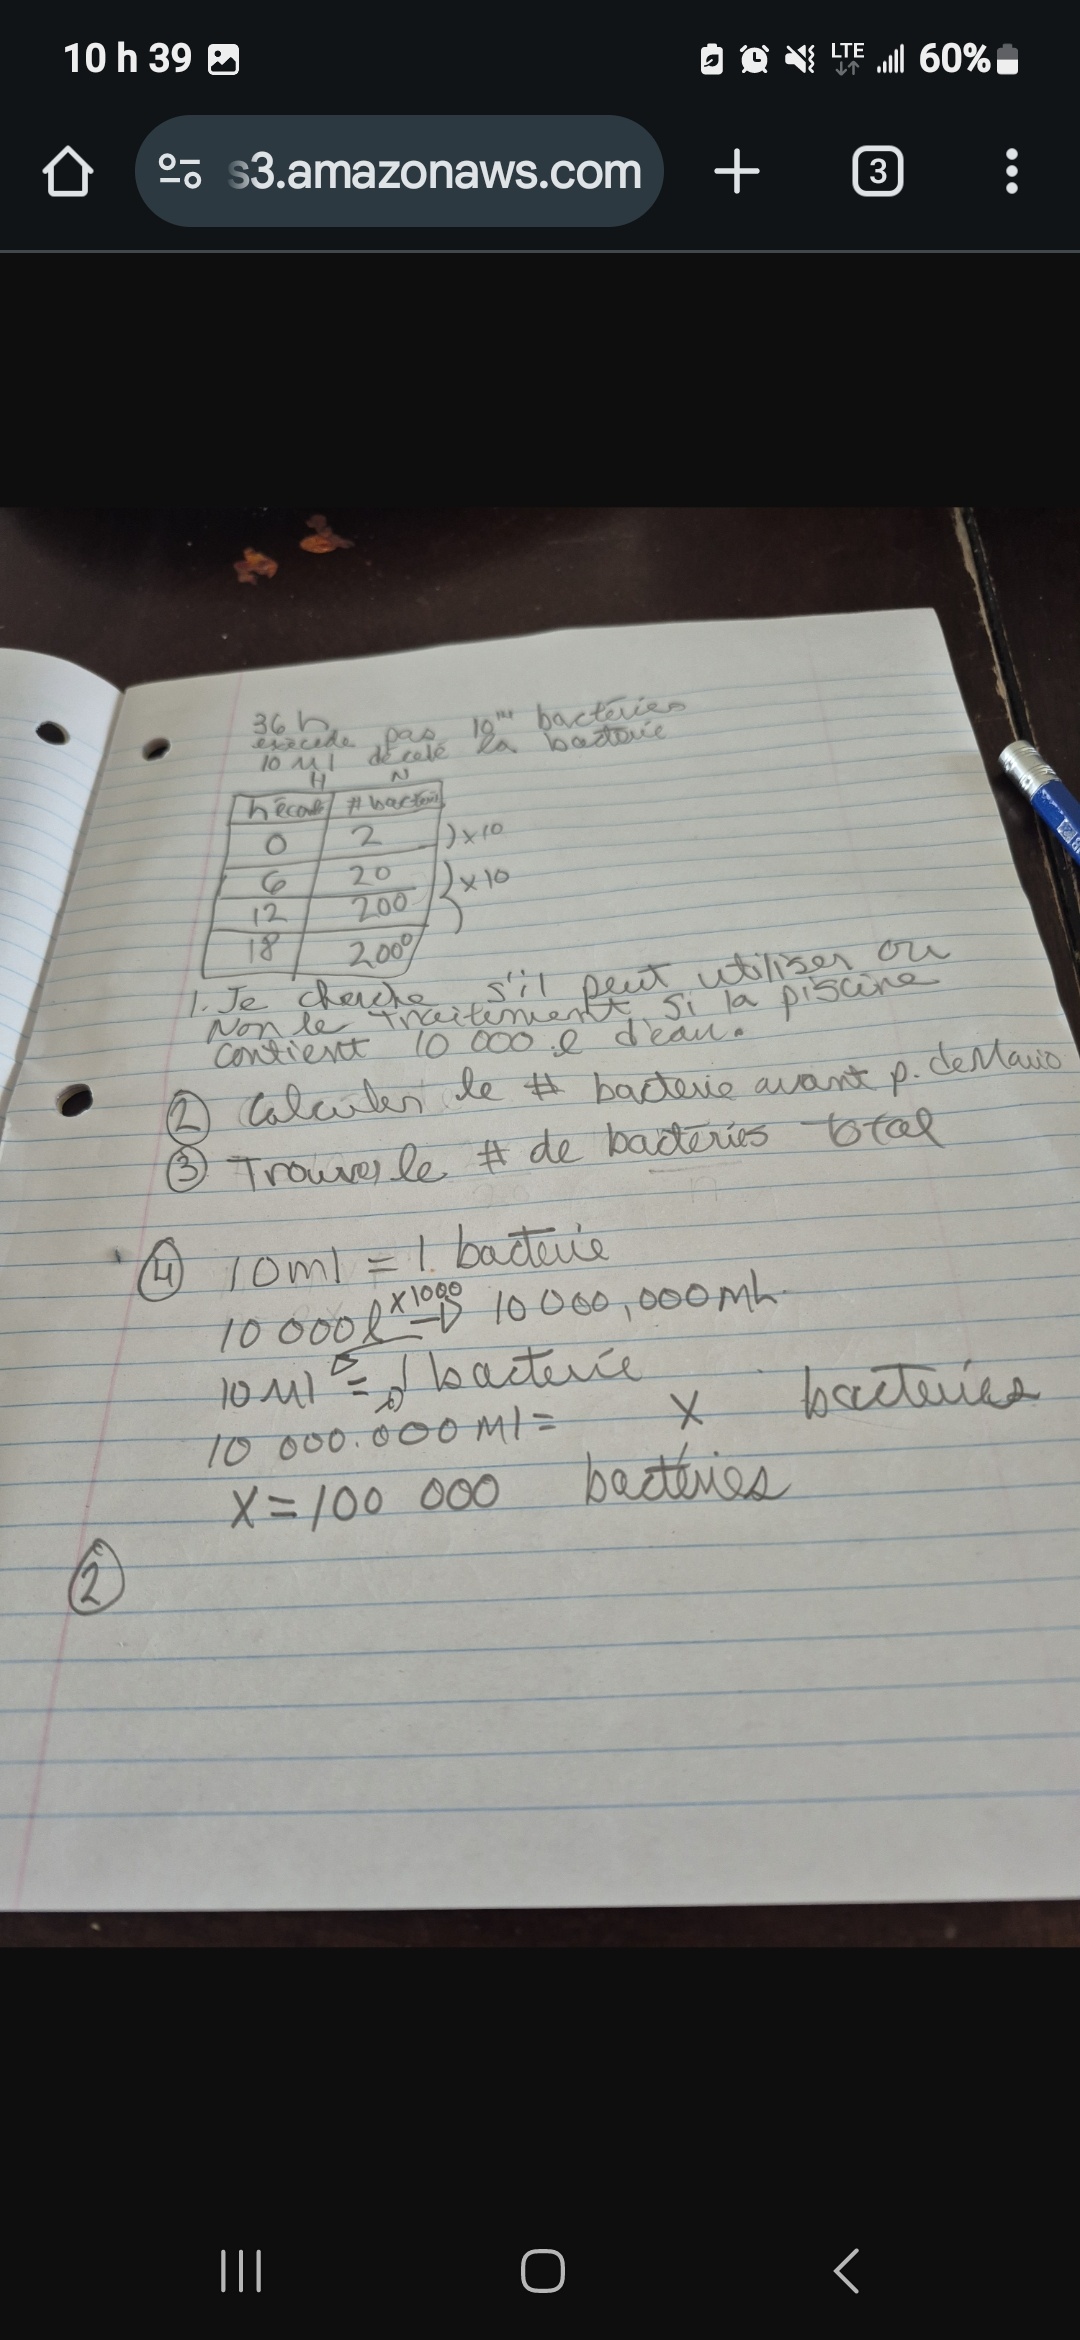 10 h 39
LTE
60%
s3.amazonaws.com
3
36 h
excède pas 10 bactéries
10 Ml décelé la bacterie
H N
h écoulé # bacteries
0 2 x10
6 20 x10
12 200
18 2000
1. Je cherche s'il peut utiliser ou
Non le traitement, si la piscine
contient 10 000 l d'eau.
② Calculer le # bacterie avant p. de Mario
③ Trouver le # de bactéries total
④ 10 ml = 1 bacterie
x1000
10 000 l 10 000,000 ml
10 Ml = 1 bacterie
10 000.000 Ml = x bacteries
X = 100 000 bactéries
②